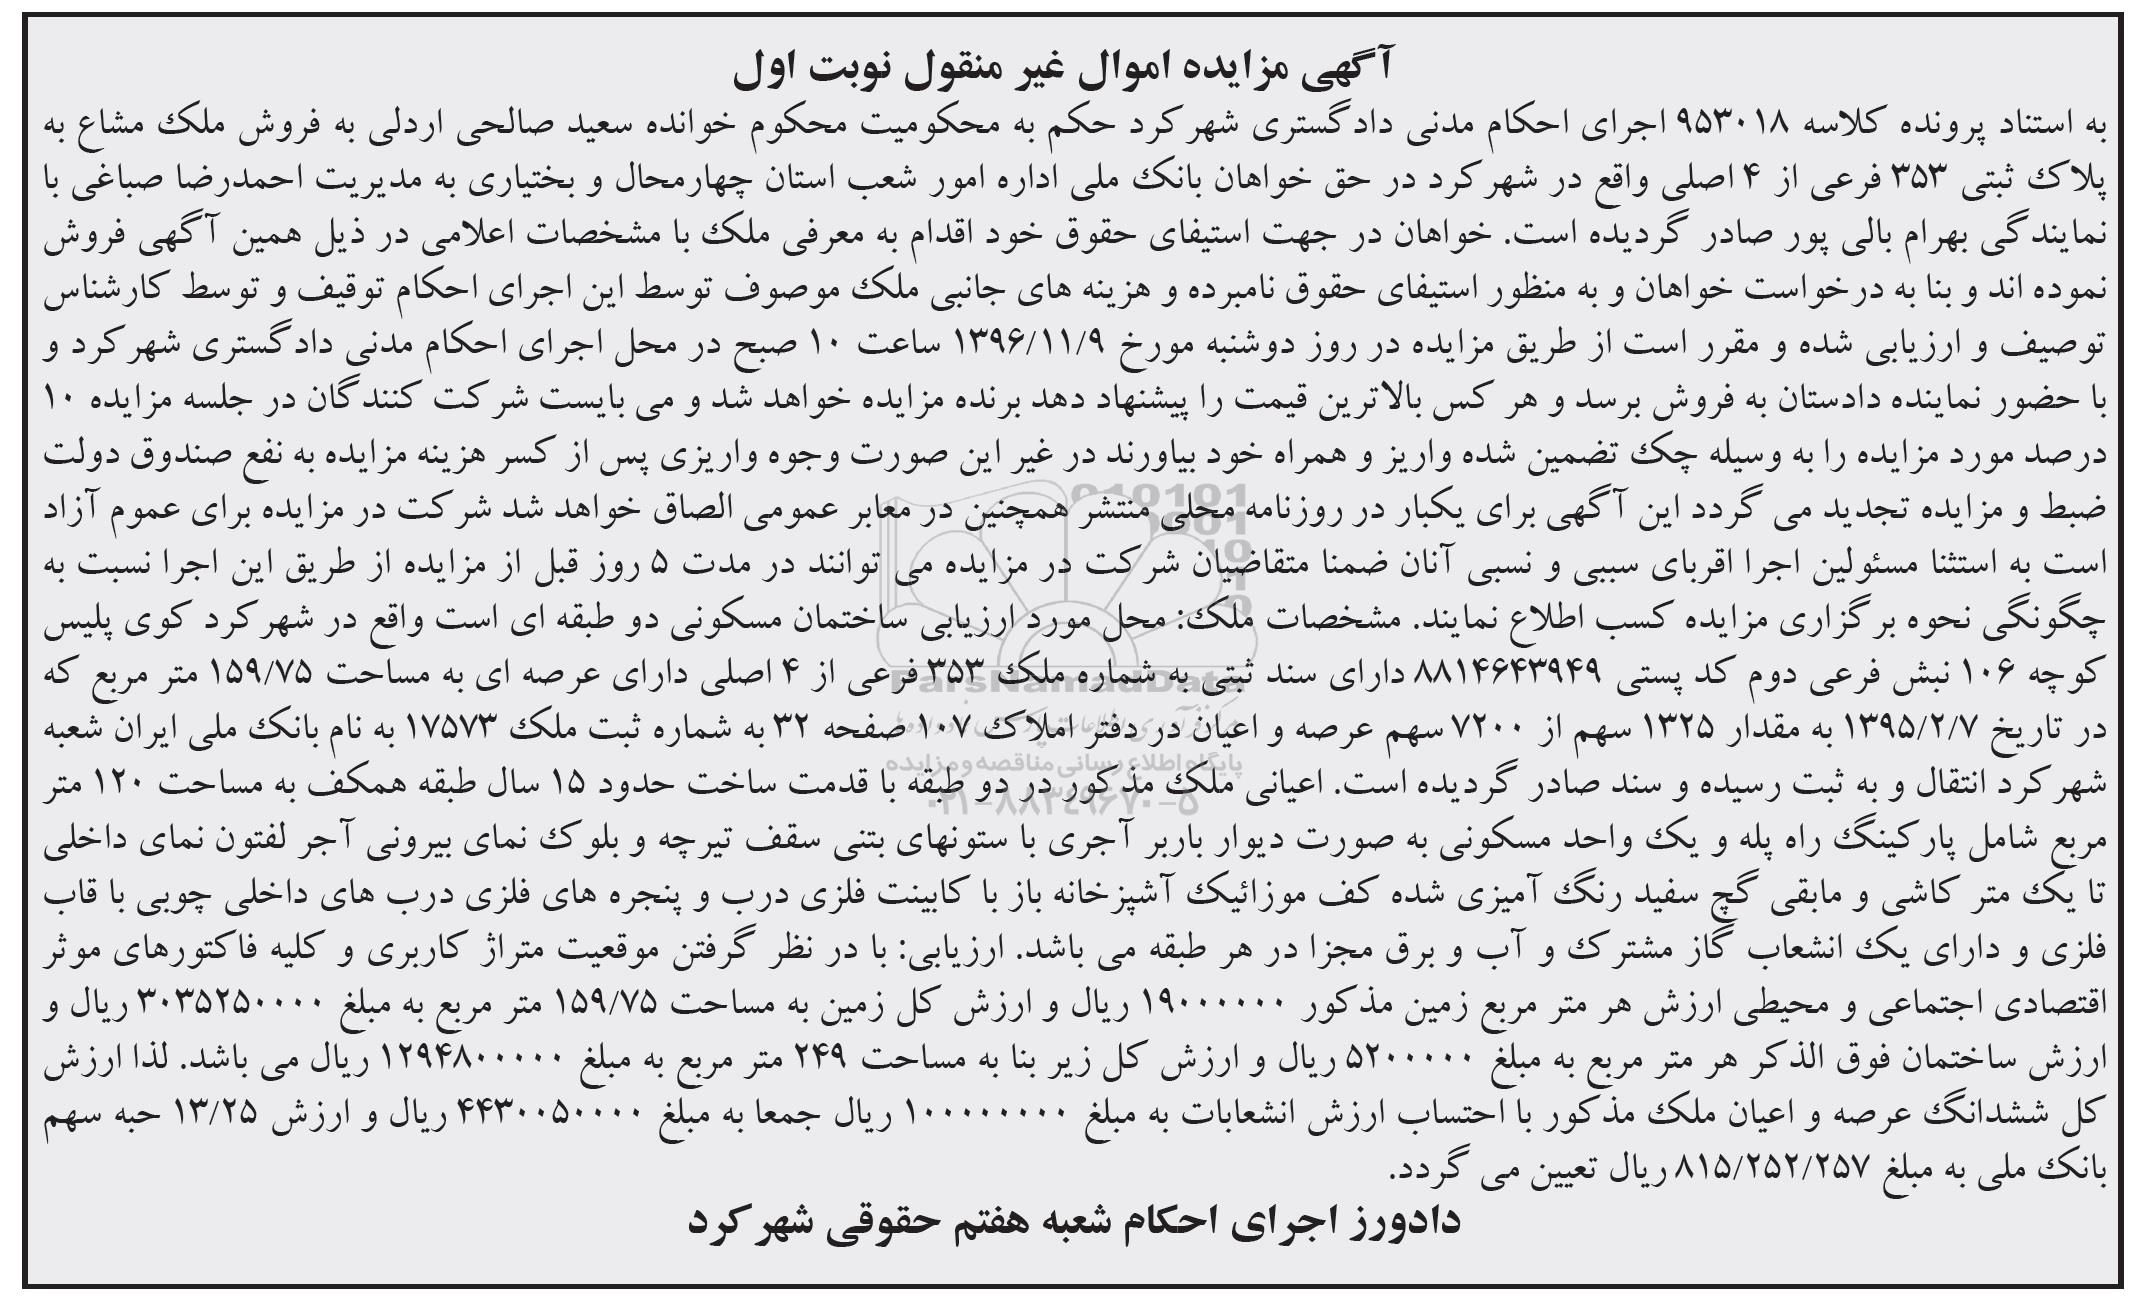 آگهی مزایده اموال غیر منقول نوبت اول
به استناد پرونده کلاسه ۹۵۳۰۱۸ اجرای احکام مدنی دادگستری شهرکرد حکم به محکومیت محکوم خوانده سعید صالحی اردلی به فروش ملک مشاع به
پلاک ثبتی ۳۵۳ فرعی از ۴ اصلی واقع در شهرکرد در حق خواهان بانک ملی اداره امور شعب استان چهارمحال و بختیاری به مدیریت احمدرضا صباغی با
نمایندگی بهرام بالی پور صادر گردیده است. خواهان در جهت استیفای حقوق خود اقدام به معرفی ملک با مشخصات اعلامی در ذیل همین آگهی فروش
نموده اند و بنا به درخواست خواهان و به منظور استیفای حقوق نامبرده و هزینه های جانبی ملک موصوف توسط این اجرای احکام توقیف و توسط کارشناس
توصیف و ارزیابی شده و مقرر است از طریق مزایده در روز دوشنبه مورخ ۱۳۹۶/۱۱/۹ ساعت ۱۰ صبح در محل اجرای احکام مدنی دادگستری شهرکرد و
با حضور نماینده دادستان به فروش برسد و هر کس بالاترین قیمت را پیشنهاد دهد برنده مزایده خواهد شد و می بایست شرکت کنندگان در جلسه مزایده ۱۰
درصد مورد مزایده را به وسیله چک تضمین شده واریز و همراه خود بیاورند در غیر این صورت وجوه واریزی پس از کسر هزینه مزایده به نفع صندوق دولت
ضبط و مزایده تجدید می گردد این آگهی برای یکبار در روزنامه محلی منتشر همچنین در معابر عمومی الصاق خواهد شد شرکت در مزایده برای عموم آزاد
است به استثنا مسئولین اجرا اقربای سببی و نسبی آنان ضمنا متقاضیان شرکت در مزایده می توانند در مدت ۵ روز قبل از مزایده از طریق این اجرا نسبت به
چگونگی نحوه برگزاری مزایده کسب اطلاع نمایند. مشخصات ملک: محل مورد ارزیابی ساختمان مسکونی دو طبقه ای است واقع در شهرکرد کوی پلیس
کوچه ۱۰۶ نبش فرعی دوم کد پستی ۸۸۱۴۶۴۳۹۴۹ دارای سند ثبتی به شماره ملک ۳۵۳ فرعی از ۴ اصلی دارای عرصه ای به مساحت ۱۵۹/۷۵ متر مربع که
در تاریخ ۱۳۹۵/۲/۷ به مقدار ۱۳۲۵ سهم از ۷۲۰۰ سهم عرصه و اعیان در دفتر املاک ۱۰۷ صفحه ۳۲ به شماره ثبت ملک ۱۷۵۷۳ به نام بانک ملی ایران شعبه
شهرکرد انتقال و به ثبت رسیده و سند صادر گردیده است. اعیانی ملک مذکور در دو طبقه با قدمت ساخت حدود ۱۵ سال طبقه همکف به مساحت ۱۲۰ متر
مربع شامل پارکینگ راه پله و یک واحد مسکونی به صورت دیوار باربر آجری با ستونهای بتنی سقف تیرچه و بلوک نمای بیرونی آجر لفتون نمای داخلی
تا یک متر کاشی و مابقی گچ سفید رنگ آمیزی شده کف موزائیک آشپزخانه باز با کابینت فلزی درب و پنجره های فلزی درب های داخلی چوبی با قاب
فلزی و دارای یک انشعاب گاز مشترک و آب و برق مجزا در هر طبقه می باشد. ارزیابی: با در نظر گرفتن موقعیت متراژ کاربری و کلیه فاکتورهای موثر
اقتصادی اجتماعی و محیطی ارزش هر متر مربع زمین مذکور ۱۹۰۰۰۰۰۰ ریال و ارزش کل زمین به مساحت ۱۵۹/۷۵ متر مربع به مبلغ ۳۰۳۵۲۵۰۰۰۰ ریال و
ارزش ساختمان فوق الذکر هر متر مربع به مبلغ ۵۲۰۰۰۰۰ ریال و ارزش کل زیر بنا به مساحت ۲۴۹ متر مربع به مبلغ ۱۲۹۴۸۰۰۰۰۰ ریال می باشد. لذا ارزش
کل ششدانگ عرصه و اعیان ملک مذکور با احتساب ارزش انشعابات به مبلغ ۱۰۰۰۰۰۰۰۰ ریال جمعا به مبلغ ۴۴۳۰۰۵۰۰۰۰ ریال و ارزش ۱۳/۲۵ حبه سهم
بانک ملی به مبلغ ۸۱۵/۲۵۲/۲۵۷ ریال تعیین می گردد.
دادورز اجرای احکام شعبه هفتم حقوقی شهرکرد
ParsNamadData
پایگاه اطلاع رسانی مناقصه و مزایده
۰۲۱-۸۸۳۴۹۶۷۰-۵